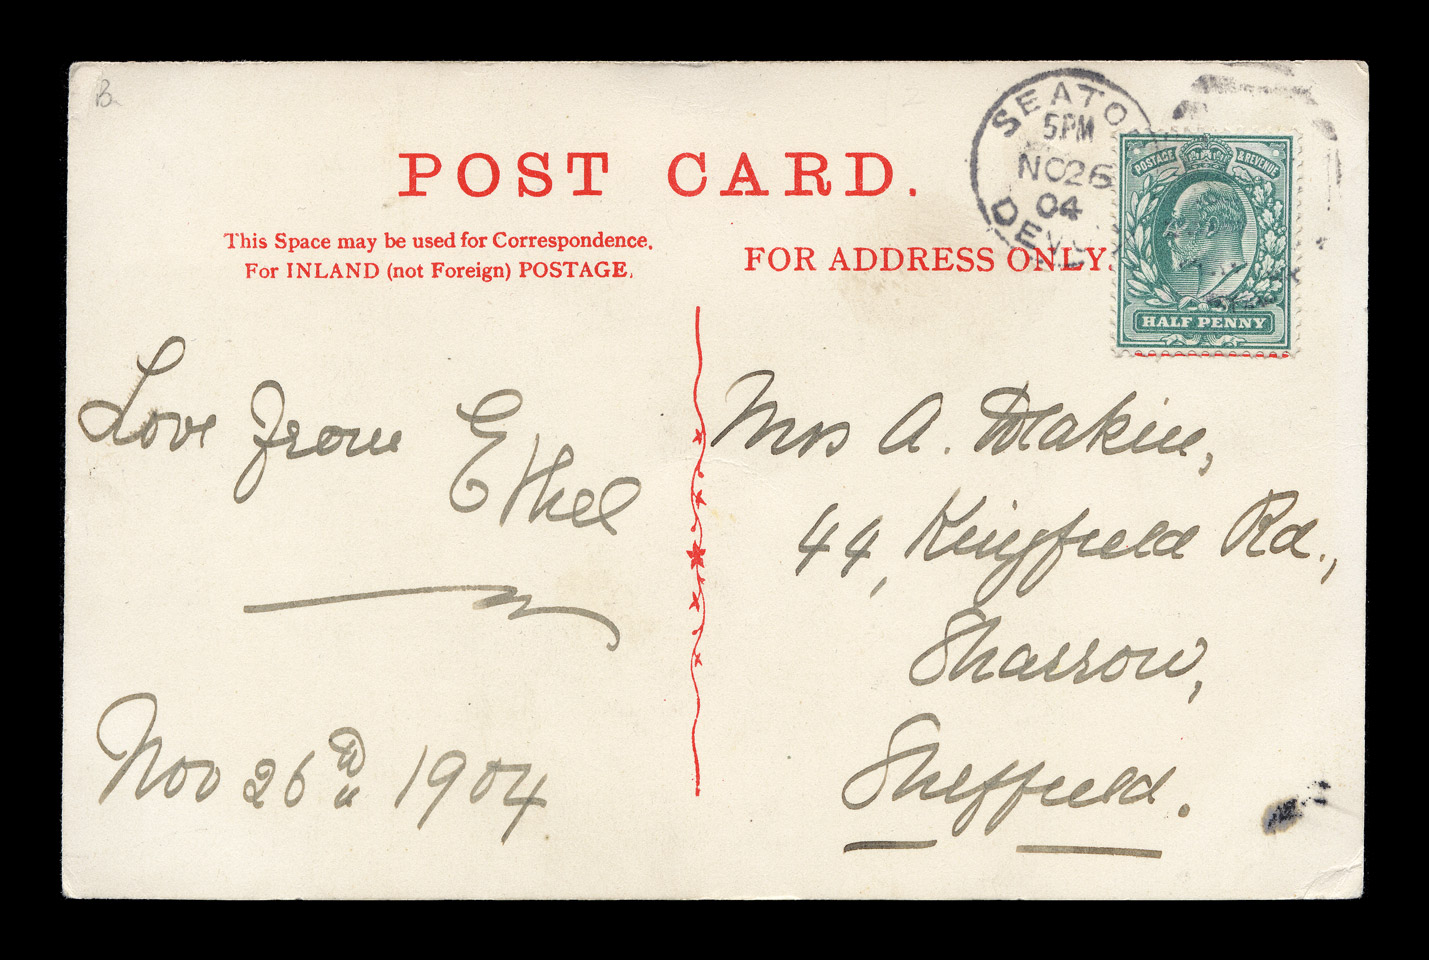 B
POST CARD.
This Space may be used for Correspondence.
For INLAND (not Foreign) POSTAGE.
FOR ADDRESS ONLY.
SEATO
5PM
NO26
04
DEV
POSTAGE & REVENUE
HALF PENNY
Love from Ethel
Nov 26th 1904
Mrs A. Makin,
44, Kingfield Rd.,
Sharrow,
Sheffield.